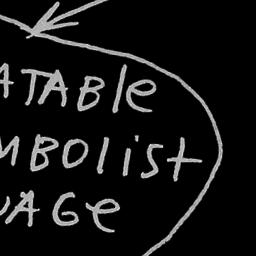 ATABLE
MBOList
UAGe